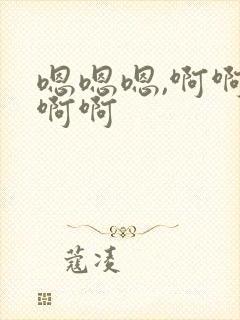 嗯嗯嗯,啊啊
啊啊
蔻凌